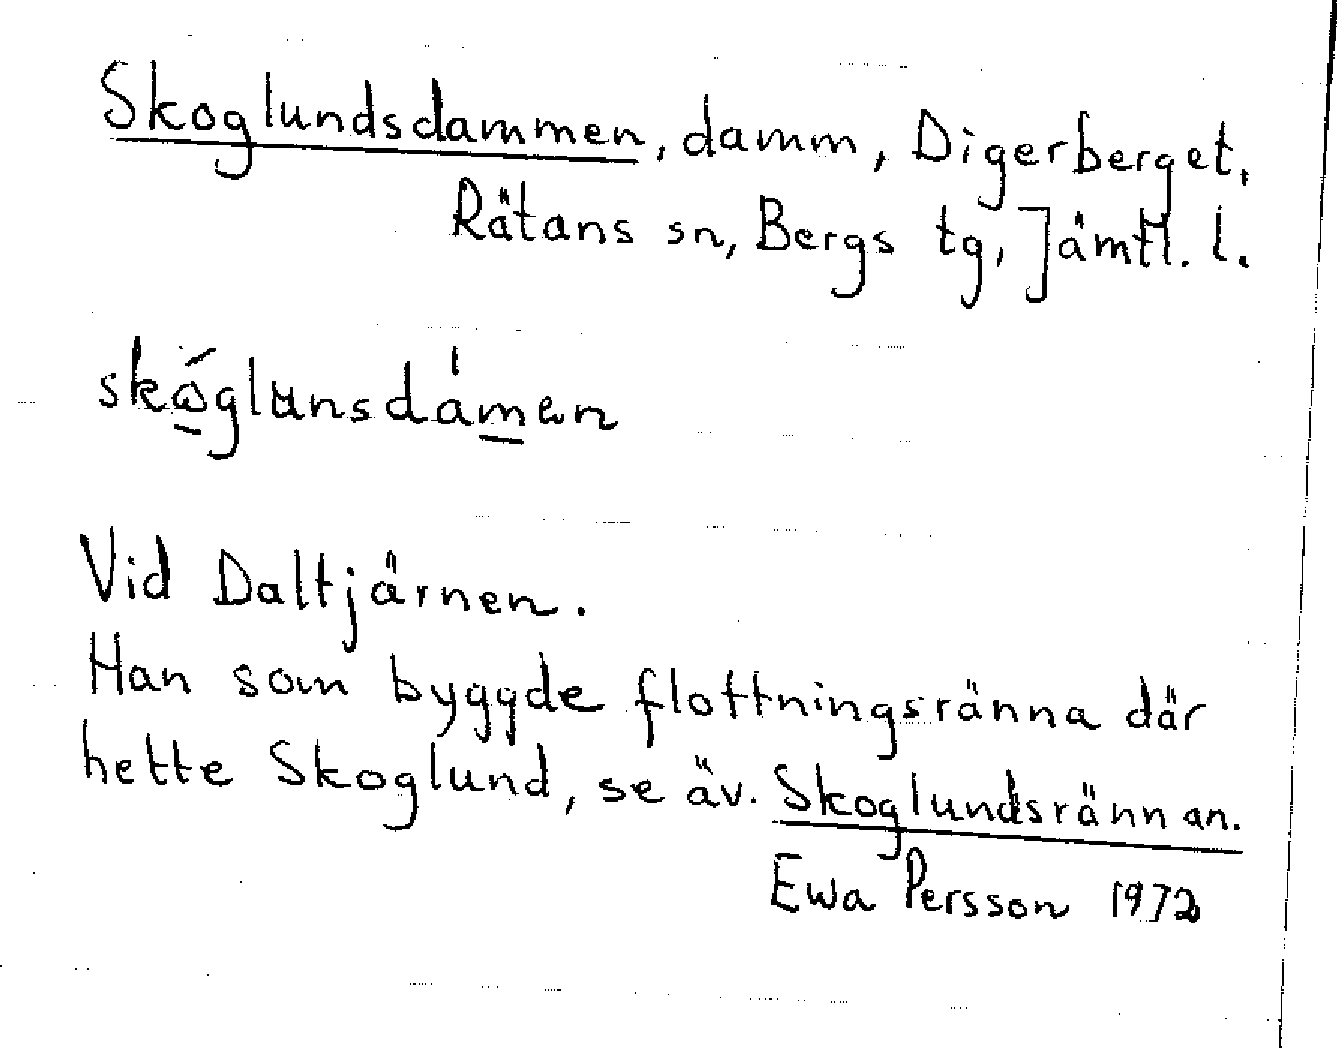 Skoglundsdammen, damm, Digerberget,
Rätans sn, Bergs tg, Jämtl. l.
skóglunsdàmen
Vid Daltjärnen.
Han som byggde flottningsränna där
hette Skoglund, se äv. Skoglundsrännan.
Ewa Persson 1972